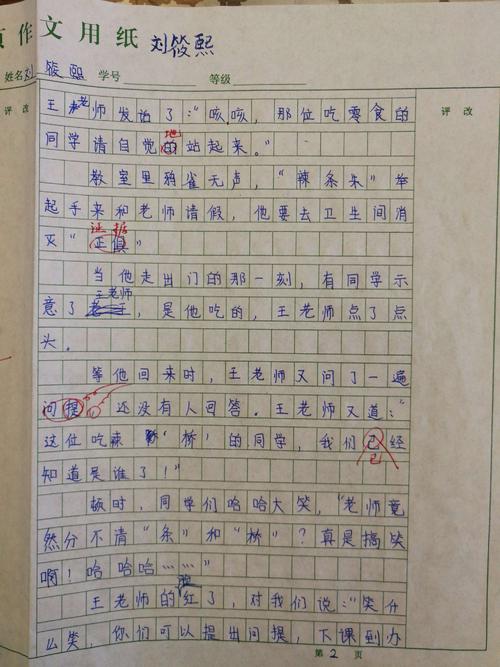 页作文用纸 刘筱熙
姓名刘筱熙 学号 等级
评改 评改
王老师发话了:“咳咳,那位吃零食的
地
同学请自觉的站起来。”
教室里鸦雀无声,“辣条朱”举
起手来和老师请假,他要去卫生间消
证据
灭“正俱”
当他走出门的那一刻,有同学示
王老师
意了,是他吃的,王老师点了点
头。
等他回来时,王老师又问了一遍
问提,还没有人回答。王老师又道:“
这位吃辣‘桥’的同学,我们已经
已
知道是谁了!”
顿时,同学们哈哈大笑,“老师竟
然分不清“条”和“桥”?真是搞笑
啊!哈哈哈……”
脸
王老师的红了,对我们说:“笑什
么笑,你们可以提出问提,下课到办
第2页